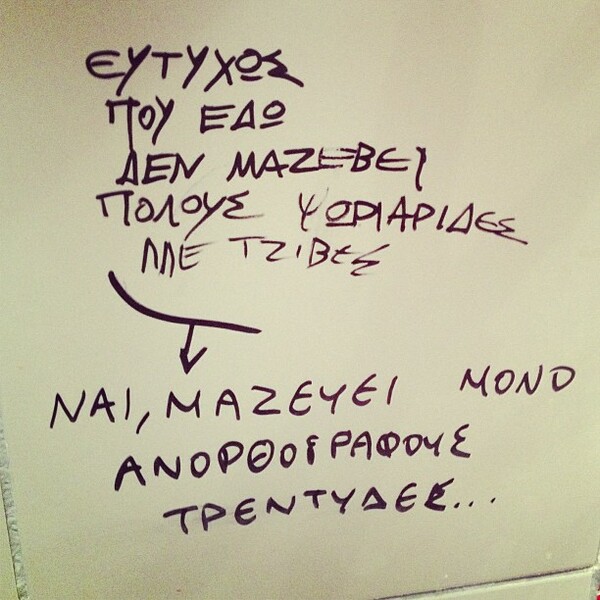 ΕΥΤΥΧΩΣ
ΠΟΥ ΕΔΩ
ΔΕΝ ΜΑΖΕΒΕΙ
ΠΟΛΟΥΣ ΨΩΡΙΑΡΙΔΕΣ
ΜΕ ΤΖΙΒΕΣ
ΝΑΙ, ΜΑΖΕΥΕΙ ΜΟΝΟ
ΑΝΟΡΘΟΓΡΑΦΟΥΣ
ΤΡΕΝΤΥΔΕΣ...